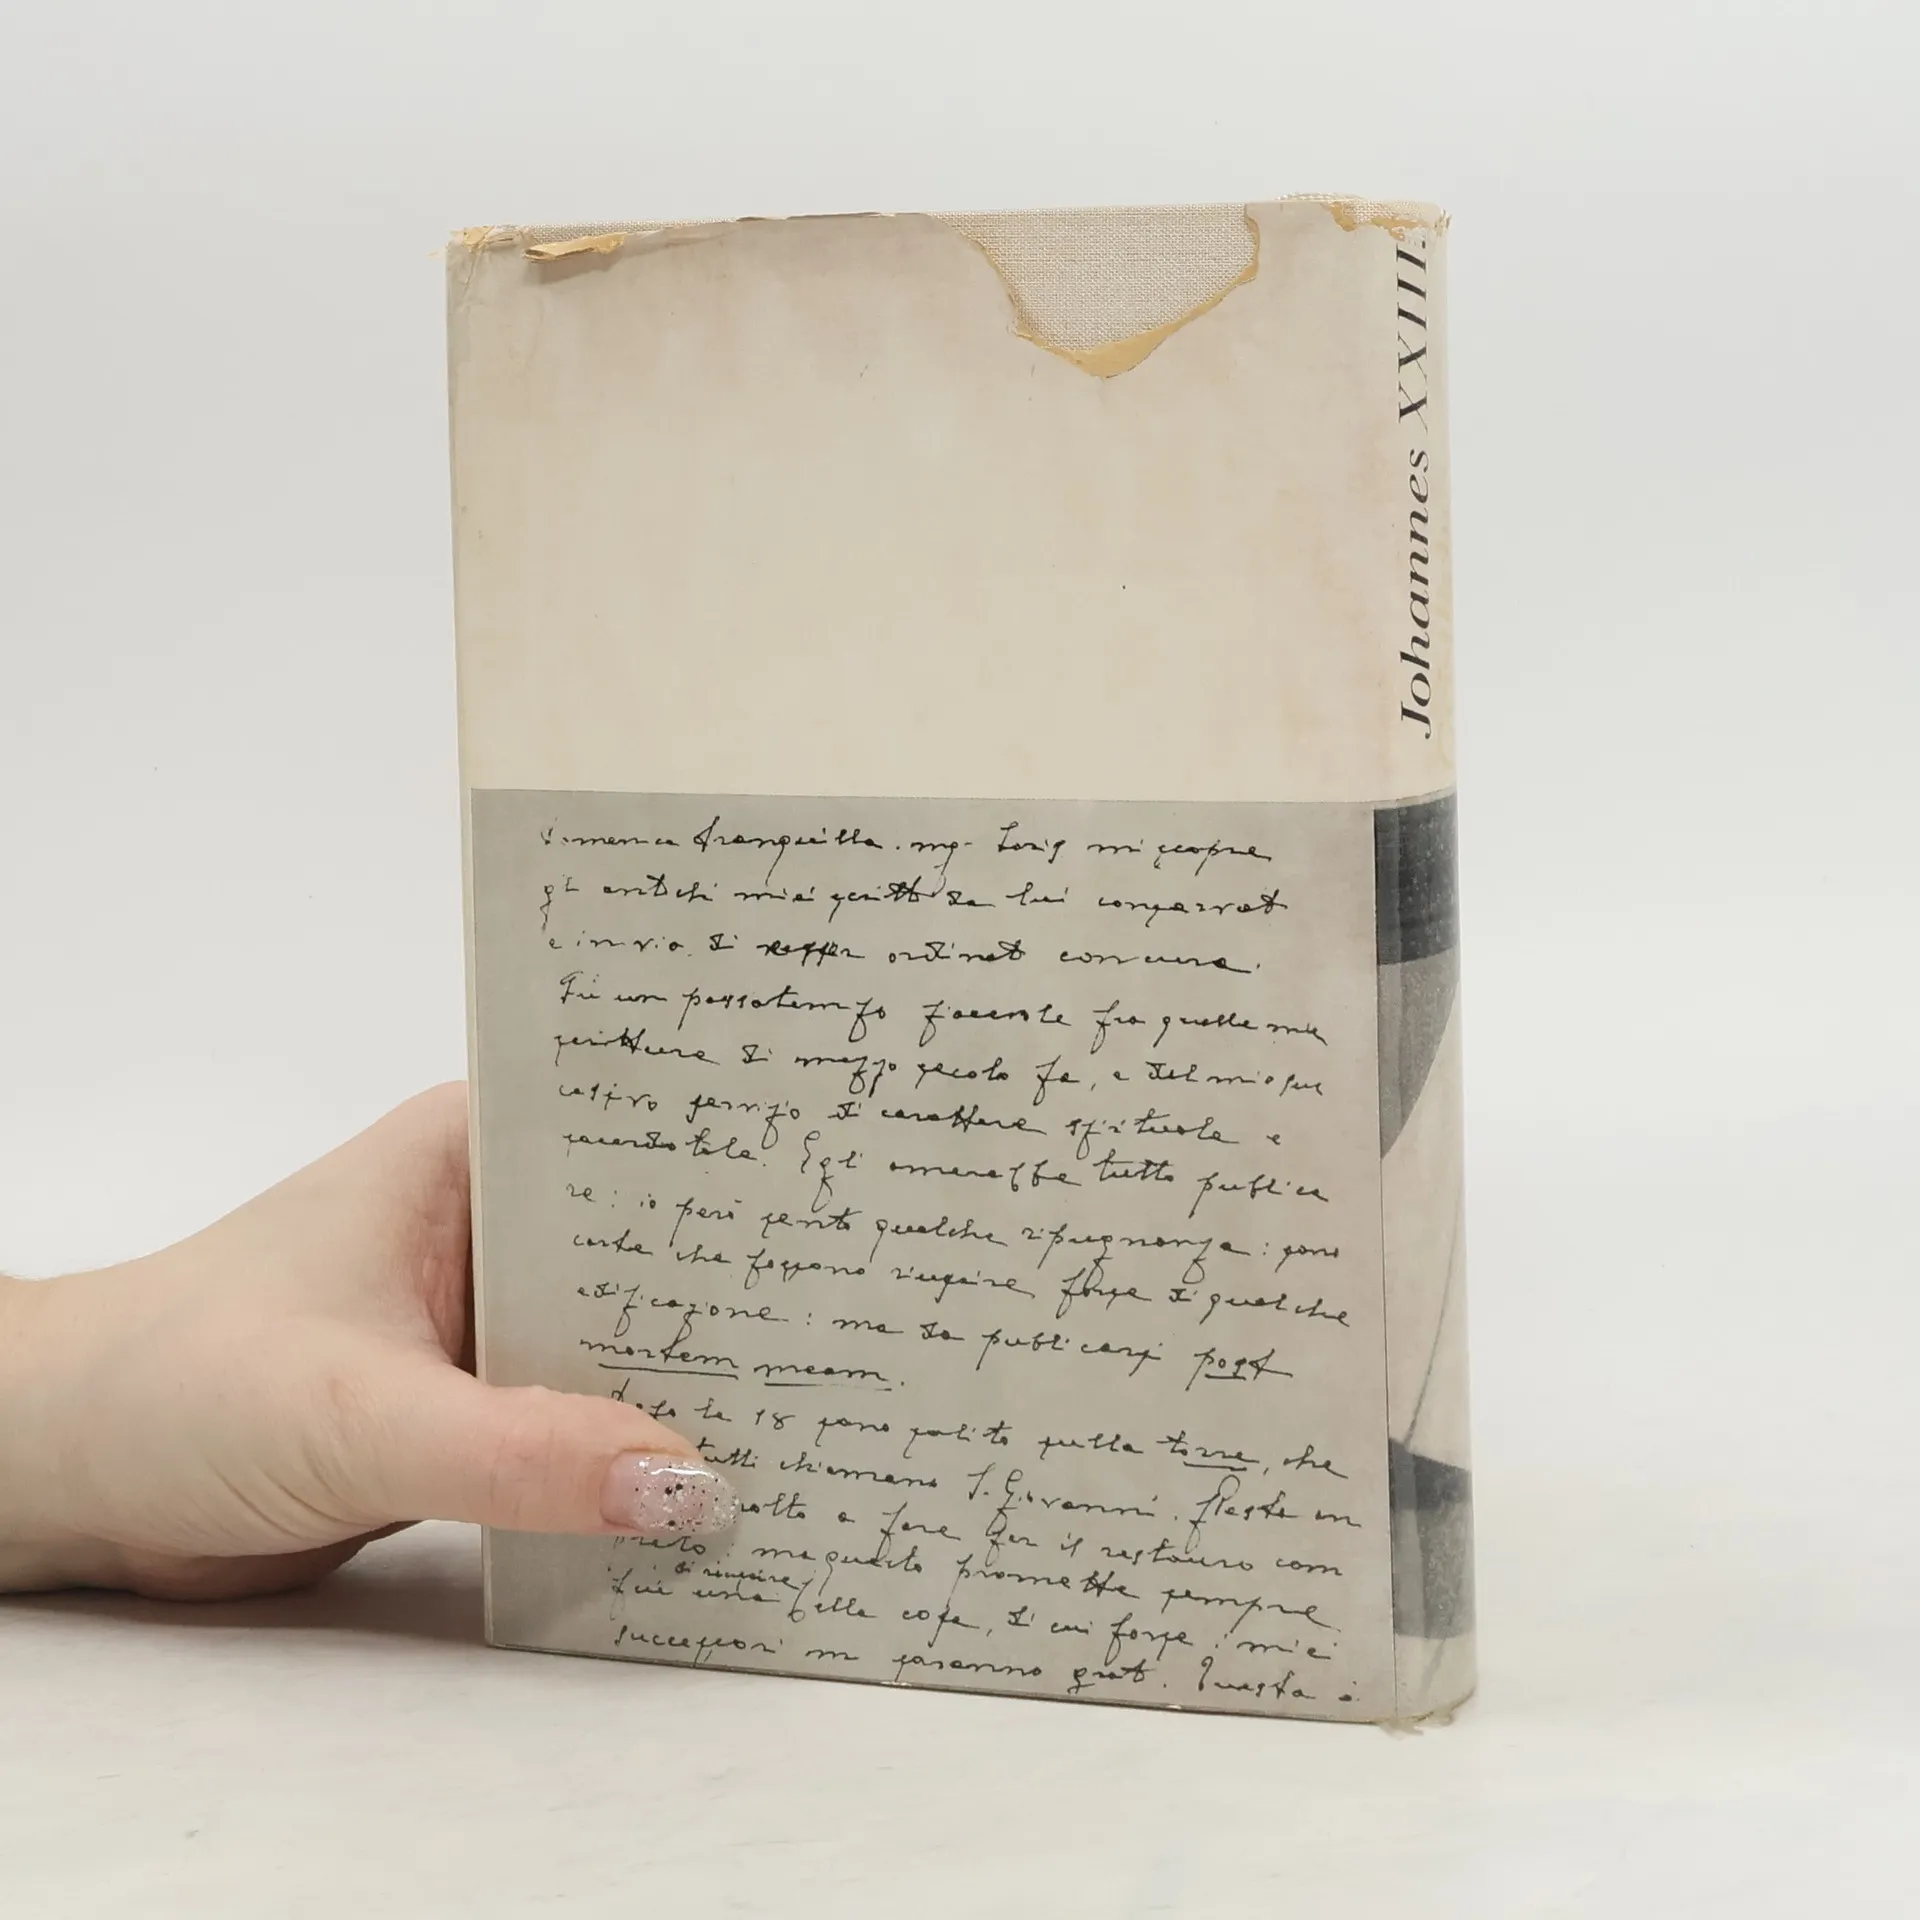 Johannes XXIII.
Domenica tranquilla. mgr Loris mi scopre
gli antichi miei scritti da lui conservati
e in via di esser ordinati con cura.
Fu un passatempo piacevole fra quelle mie
scritture di mezzo secolo fa, e del mio suc
cessivo servizio di carattere spirituale e
sacerdotale. Egli amerebbe tutto publica
re: io però sento qualche ripugnanza: sono
carte che possono riuscire forse di qualche
edificazione: ma da publicarsi post
mortem meam.
Dopo le 18 sono salito sulla torre, che
tutti chiamano S. Giovanni. Resta an
molto a fare per il restauro com
pleto: ma questo promette sempre
di riuscire
una bella cosa, di cui forse i miei
successori mi saranno grati. Questa è